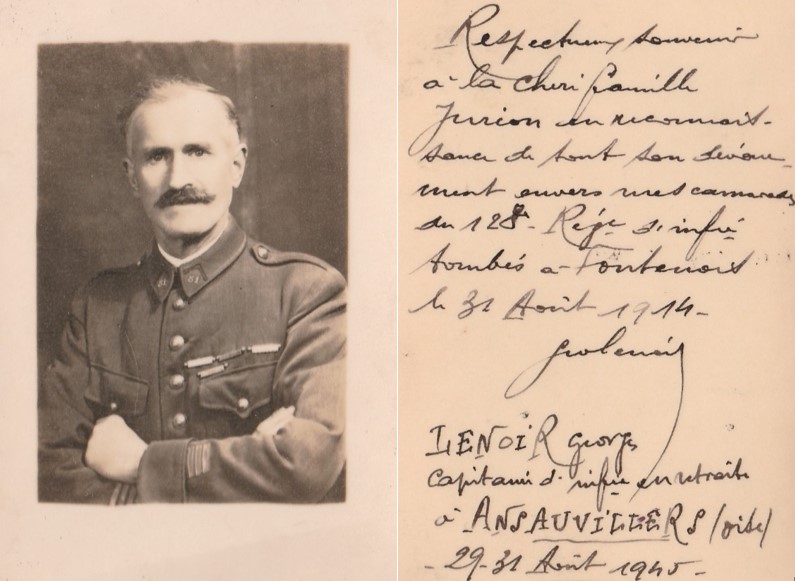 51 51
Respectueux souvenir
à la cheri famille
Jurion en reconnais-
sance de tout son dévoue-
ment envers mes camarades
du 128e Régt d'infie
tombés à Fontenois
le 31 Août 1914-
LENOIR Georges
Capitaine d'infie en retraite
à ANSAUVILLERS (oise)
- 29-31 Août 1945-